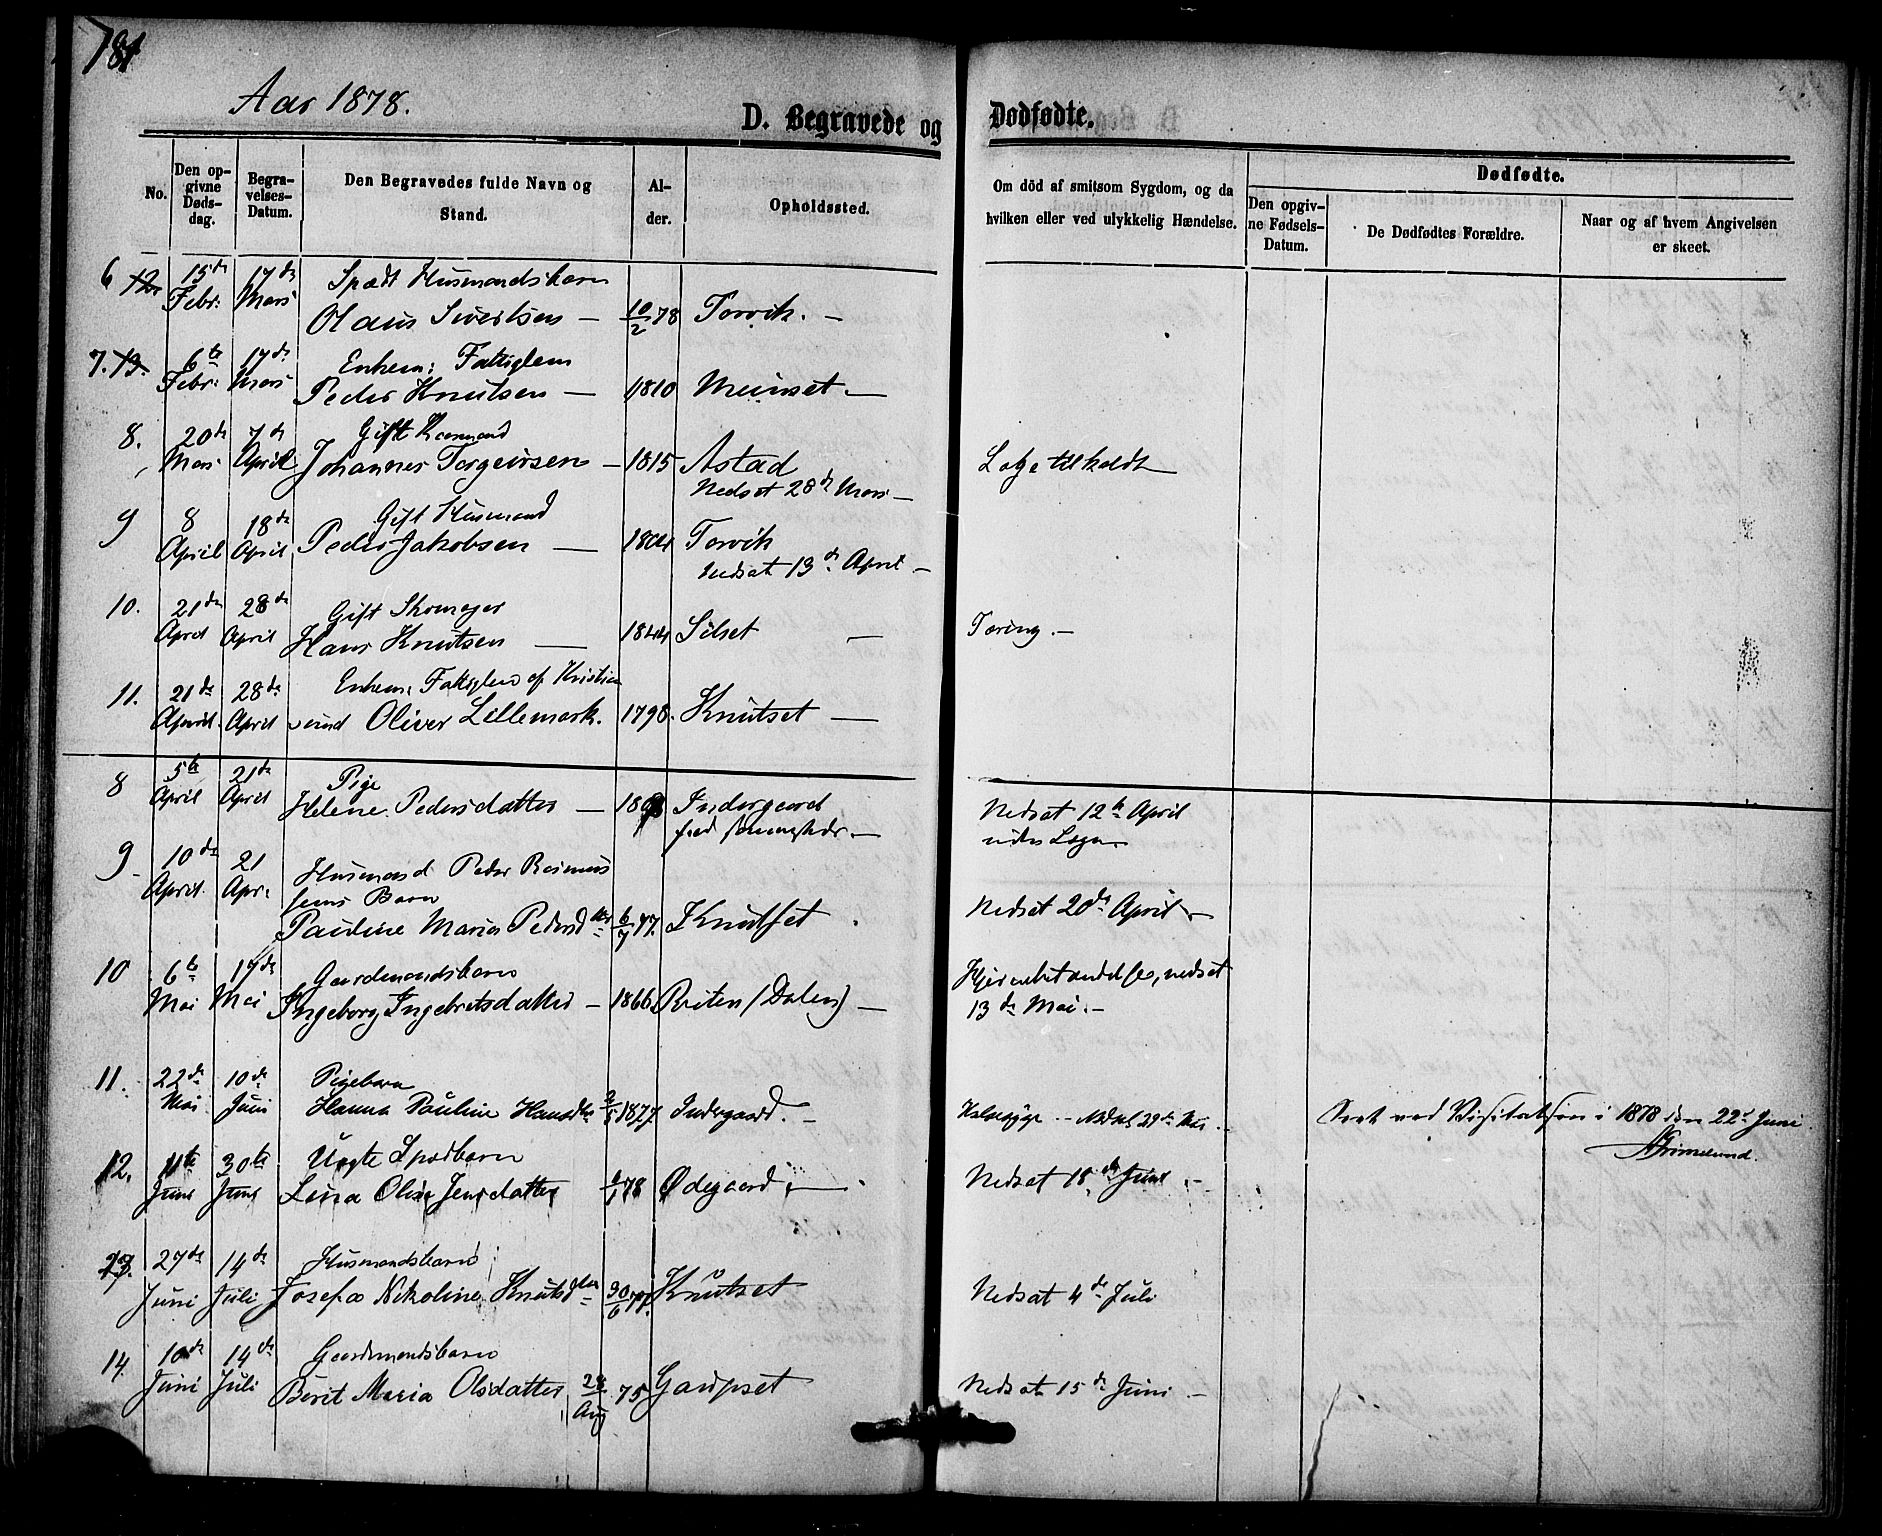 781
Aar 1878.
D. Begravede og Dødfødte.
No.
Den opgivne Døds-dag.
Begravelses-Datum.
Den Begravedes fulde Navn og Stand.
Al-der.
Opholdssted.
Om död af smitsom Sygdom, og da hvilken eller ved ulykkelig Hændelse.
Dødfødte.
Den opgivne Fødsels-Datum.
De Dødfødtes Forældre.
Naar og af hvem Angivelsen er skeet.
6 12. 15de Febr: 17de Mars Spædt Husmandsbarn
Olaus Sivertsen — 10/2 78 Torvik. —
7. 13. 6te Febr: 17de Mars Enkem: Fattiglem
Peder Knutsen — 1810 Meinset —
8. 20de Mars 7de April Gift Kaarmand
Johannes Torgeirsen — 1815 Astad
Nedsat 28de Mars —
9 8 April 18de April Gift Husmand
Peder Jakobsen — 1804 Torvik
Nedsat 13de April —
10. 21de April 28de April Gift Skomager
Hans Knutsen — 1844 Silset — Tæring. —
11. 21de April. 28de April Enkem: Fattiglem af Kristian
sund Oliver Lillemark. 1798. Knutset —
8 5te April 21de April Pige
Helene Pedersdatter — Indergaard
Nedsat 12te April
uden Læge.
9 10de April. 21 Apr. Husmand Peder Rasmus
sens Barn
Pauline Maria Pedersdtter 6/7 77. Knutset. Nedsat 20de April —
10 6te Mai 17de Mai Gaardmandsbarn
Ingeborg Ingebretsdatter — 1866 Reiten (Dalen) —
Hjernebetændelse, nedsat
13de Mai. —
11. 22de Mai 10de Juni Pigebarn
Hanna Pauline Hansdter 1877. Indergaard. —
Nedsat 29de Mai. —
Seet ved Visitatsen i 1878 den 22de Juni
Grimelund.
12. 11te Juni 30te Juni Uægte Spædbarn
Lina Oline Jensdatter 78 Ødegaard. — Nedsat 18de Juni. —
13. 27de Juni 14de Juli Husmandsbarn
Josefa Nikoline Knutsdter 30/6 77. Knutset Nedsat 4de Juli
14. 10de Juni 14de Juli Gaardmandsbarn
Berit Maria Olsdatter 28 Aug 75 Gaupset Nedsat 15de Juni —